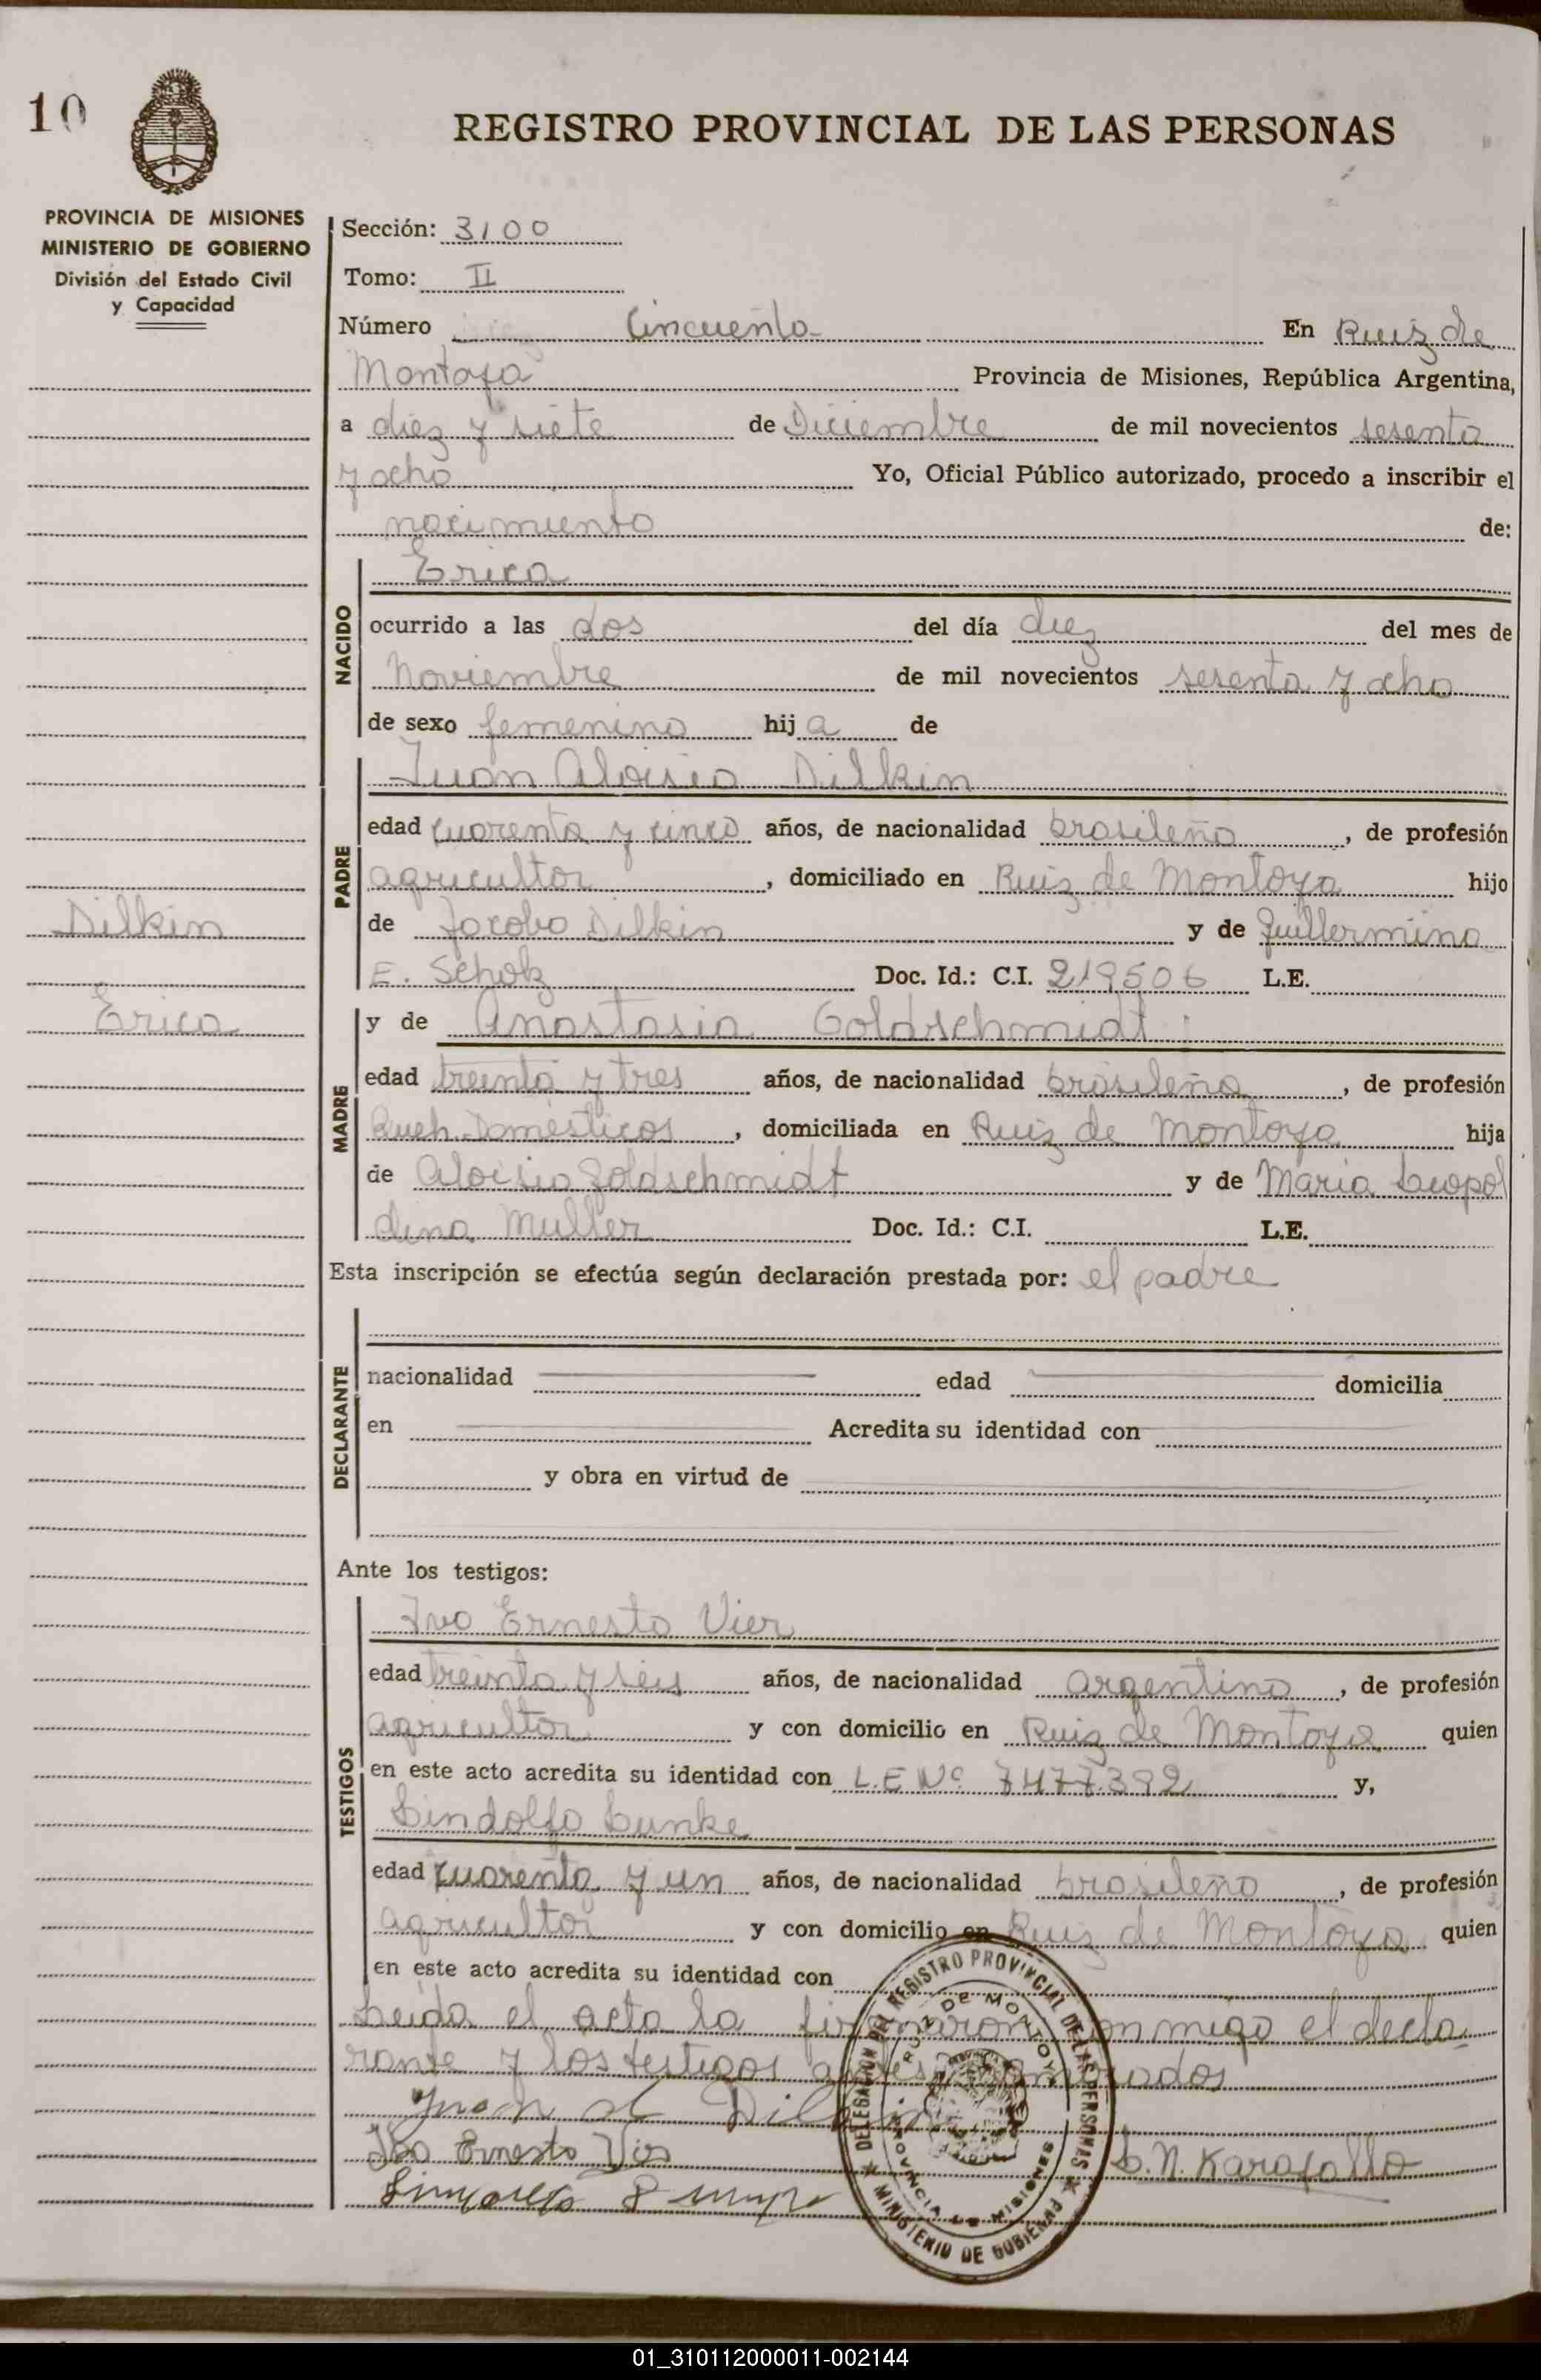 10
REGISTRO PROVINCIAL DE LAS PERSONAS
PROVINCIA DE MISIONES
MINISTERIO DE GOBIERNO
División del Estado Civil
y Capacidad
Sección: 3100
Tomo: II
Número Cincuenta En Ruiz de
Montoya Provincia de Misiones, República Argentina,
a diez y siete de Diciembre de mil novecientos sesenta
y ocho Yo, Oficial Público autorizado, procedo a inscribir el
nacimiento de:
Erica
NACIDO
ocurrido a las dos del día diez del mes de
Noviembre de mil novecientos sesenta y ocho
de sexo femenino hija de
Juan Aloisio Dilkin
PADRE
edad cuarenta y cinco años, de nacionalidad brasileña, de profesión
agricultor, domiciliado en Ruiz de Montoya hijo
de Jacobo Dilkin y de Guillermina
E. Scholz Doc. Id.: C.I. 219506 L.E.
Dilkin
Erica
y de Anastasia Goldschmidt
MADRE
edad treinta y tres años, de nacionalidad brasileña, de profesión
Queh. Domésticos, domiciliada en Ruiz de Montoya hija
de Aloisio Goldschmidt y de Maria Leopol
dina Muller Doc. Id.: C.I. L.E.
Esta inscripción se efectúa según declaración prestada por: el padre
DECLARANTE
nacionalidad edad domicilia
en Acredita su identidad con
y obra en virtud de
Ante los testigos:
Ivo Ernesto Vier
TESTIGOS
edad treinta y seis años, de nacionalidad argentino, de profesión
agricultor y con domicilio en Ruiz de Montoya quien
en este acto acredita su identidad con L.E Nº 7477.392 y,
Lindolfo Lunke
edad cuarenta y un años, de nacionalidad brasileño, de profesión
agricultor y con domicilio en Ruiz de Montoya quien
en este acto acredita su identidad con
Leida el acta la firmaron conmigo el decla
rante y los testigos antes nombrados
Juan A Dilkin
Ivo Ernesto Vier
DELEGACION DEL REGISTRO PROVINCIAL DE LAS PERSONAS
MINISTERIO DE GOBIERNO
RUIZ DE MONTOYA
PROVINCIA DE MISIONES
01_310112000011-002144